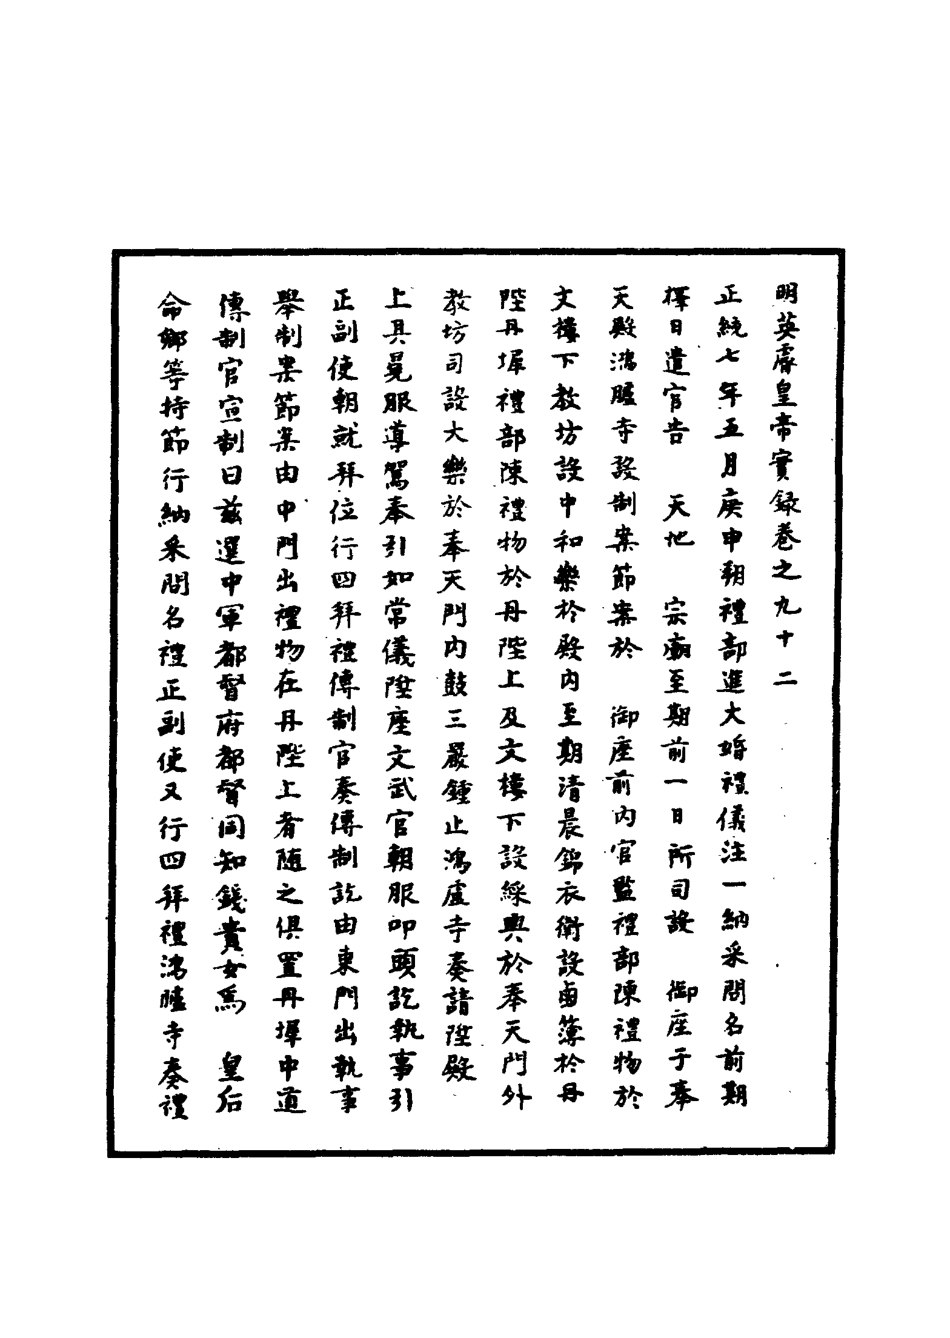 明英睿皇帝實錄卷之九十二
正統七年五月庚申朔禮部進大婚禮儀注一納采問名前期
擇日遣官告　天地　宗廟至期前一日所司設　御座于奉
天殿鴻臚寺設制案節案於　御座前內官監禮部陳禮物於
文樓下教坊設中和樂於殿內至期清晨錦衣衛設鹵簿於丹
陛丹墀禮部陳禮物於丹陛上及文樓下設綵輿於奉天門外
教坊司設大樂於奉天門內鼓三嚴鍾止鴻盧寺奏請陞殿
上具冕服導駕奉引如常儀陞座文武官朝服叩頭訖執事引
正副使朝就拜位行四拜禮傳制官奏傳制訖由東門出執事
舉制案節案由中門出禮物在丹陛上者随之俱置丹墀中道
傳制官宣制曰茲選中軍都督府都督同知錢貴女為　皇后
命卿等持節行納采問名禮正副使又行四拜禮鴻臚寺奏禮